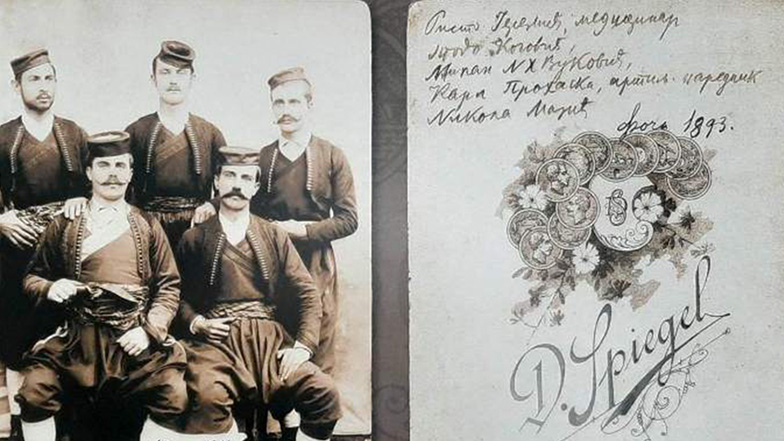 Ристо Јеремић, медицинар
Тодо Коговић,
Милан Н Х Вуковић,
Карл Прохаска, артил. наредник
Никола Мазић
Фоча 1893.
D. Spiegel